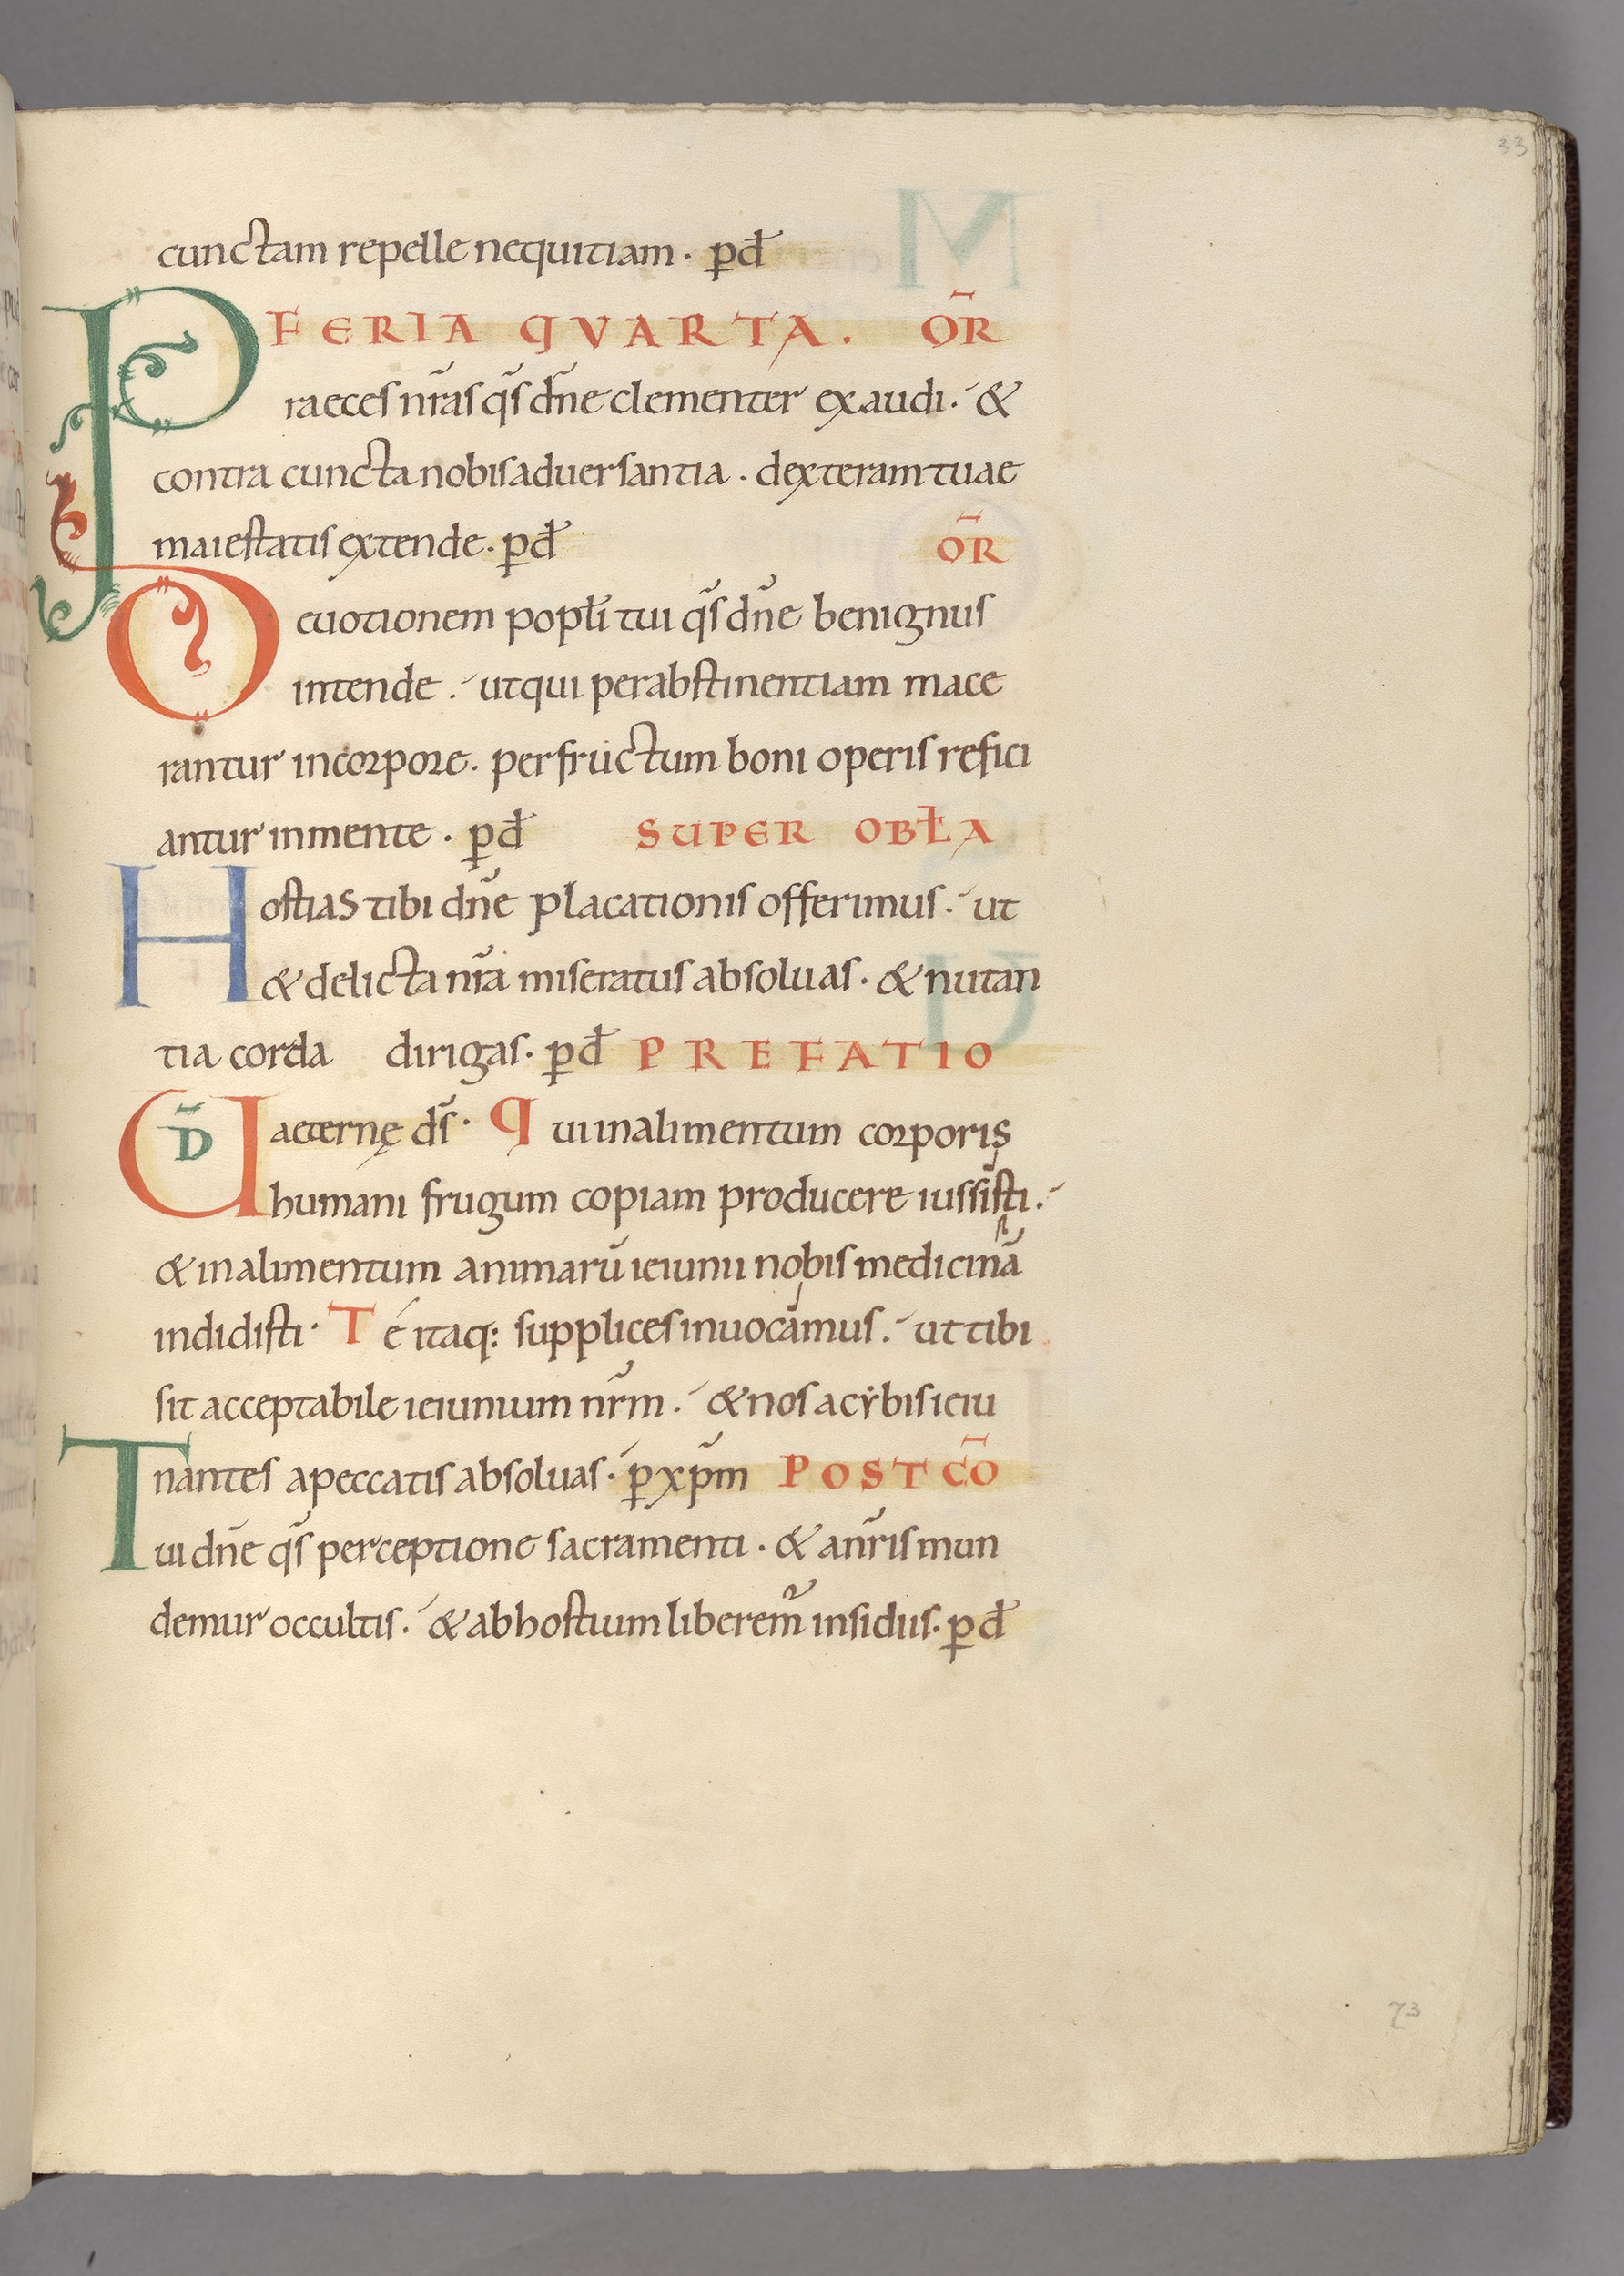 33
cunctam repelle nequitiam · p̄d̄
FERIA QVARTA . ŌR
Praeces nr̄as qs̄ dn̄e clementer exaudi · &
contra cuncta nobis aduersantia · dexteram tuae
maiestatis extende · p̄d̄ ŌR
Deuotionem popłi tui qs̄ dn̄e benignus
intende · ut qui per abstinentiam mace
rantur in corpore · per fructum boni operis refici
antur in mente · p̄d̄ SUPER OBŁA
Hostias tibi dn̄e placationis offerimus · ut
& delicta nr̄a miseratus absoluas · & nutan
tia corda dirigas · p̄d̄ PREFATIO
UD̄ aeternę ds̄ · Qui in alimentum corporis
humani frugum copiam producere iussisti ·
& in alimentum animarū ieiunii nobis medicinā
indidisti · Té itaq: supplices inuocamus · ut tibi
sit acceptabile ieiunium nr̄m · & nos a cẏbis ieiu
nantes a peccatis absoluas · p̄ xp̄m POST CŌ
Tui dn̄e qs̄ perceptione sacramenti · & a nr̄is mun
demur occultis · & ab hostium liberem̄ insidiis · p̄d̄
73